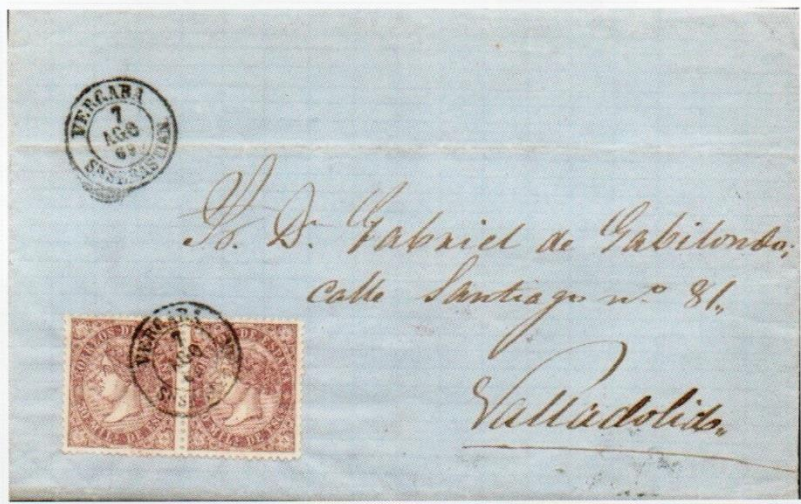 VERGARA
7
AGO
69
SN SEBASTIAN
Sr. Dn. Gabriel de Gabilondo,
calle Santiago nº 81,,
Valladolid,,
VERGARA
7
AGO